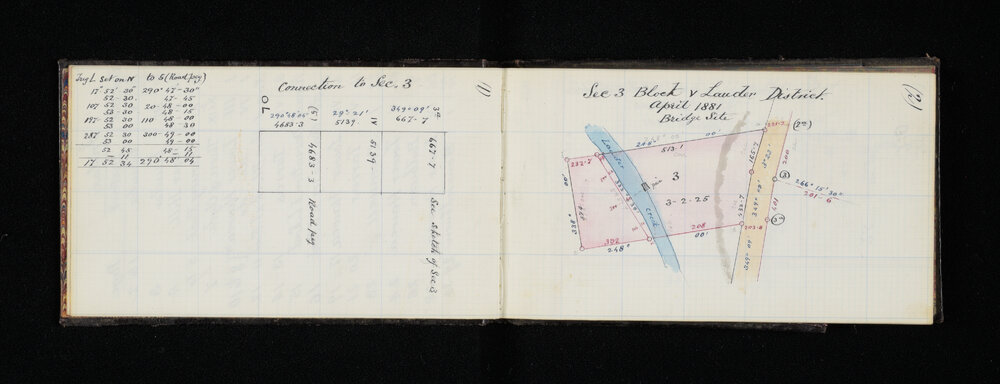 Trig L Set on IV to 5 (Road peg)
17° 52' 30" 290° 47' - 30"
52 - 30. 47 - 45
107 52 30 20 - 48 - 00
53 - 30 48 - 15
197 - 52 30 110 48 - 00
53 00 48 - 30
287 52 30 200 - 49 - 00
53 00 49 - 00
52 45 48 - 15
11 11
17 52 34 290° 48' 04
Connection to Sec. 3
(11)
(5) IV 3ra
290° 48' 04" 29° - 21' 349° 09'
4683 - 3 5139 667 - 7
4683 - 3 5139 667 - 7
Road peg See Sketch of Sec 3
(12)
Sec 3 Block V Lauder District.
April 1881
Bridge Site
248° 00'
513 · 1
232 - 7
Lauder
Creek
3
3 - 2 - 25
338° 00'
392
248° 00'
208
203 - 8
349° 09'
349° 09'
200
401
(3)
266° 15' 30"
201 - 6